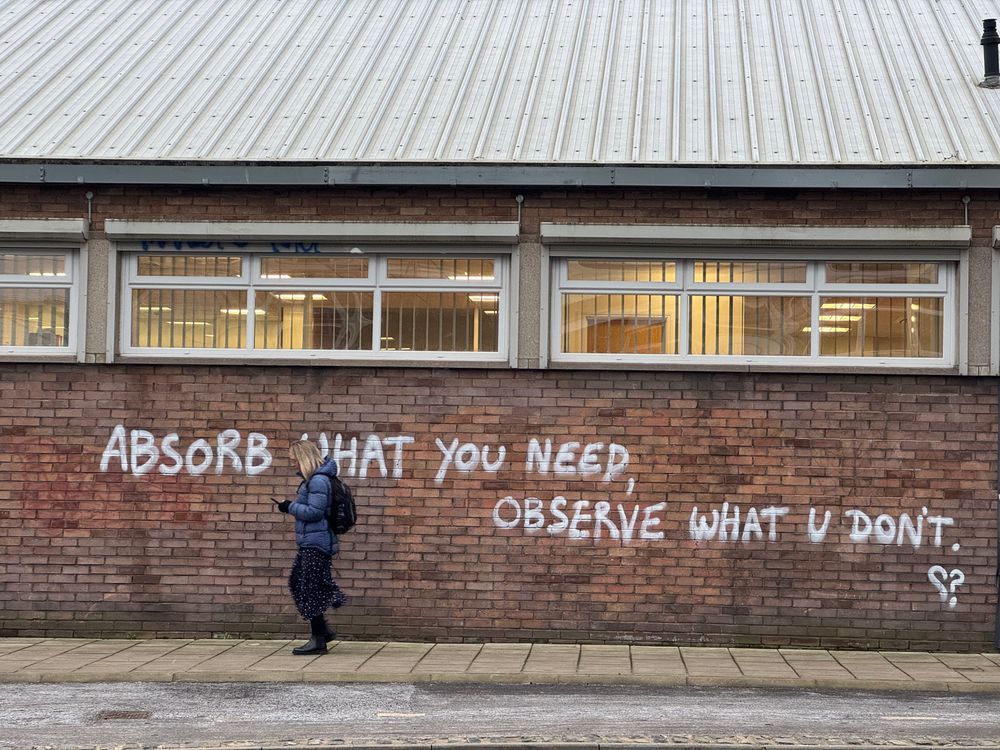 ABSORB WHAT YOU NEED,
OBSERVE WHAT U DON'T.